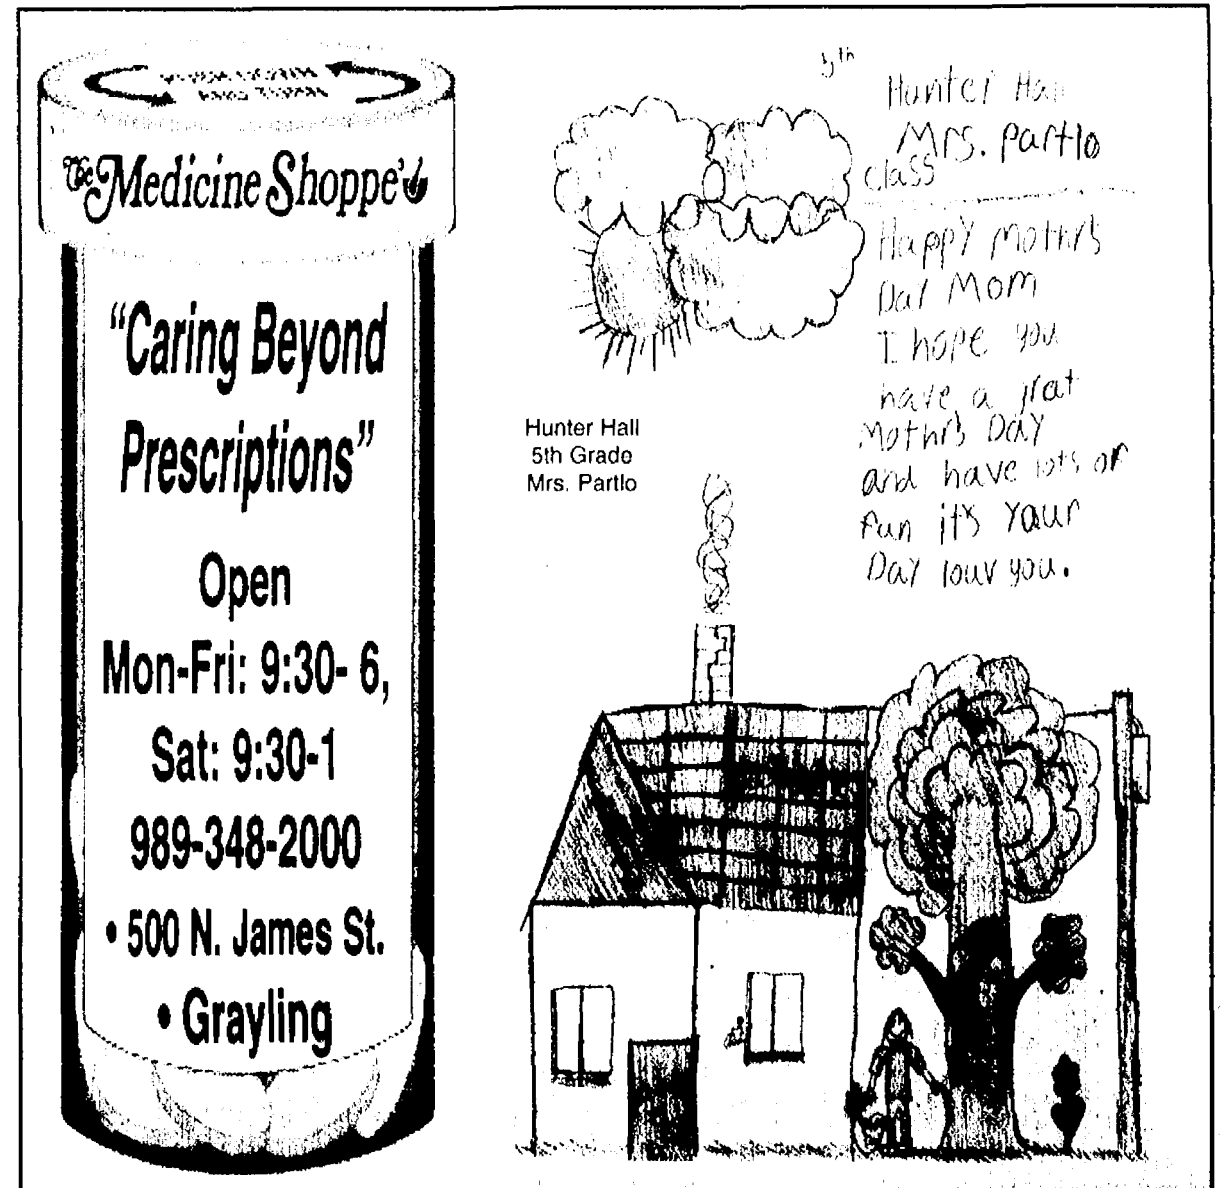 The Medicine Shoppe
"Caring Beyond
Prescriptions"
Open
Mon-Fri: 9:30- 6,
Sat: 9:30-1
989-348-2000
• 500 N. James St.
• Grayling
5th
Hunter Hall
Mrs. Partlo
class
Happy Mothrs
Day Mom
I hope you
have a grat
Mothrs Day
and have lots of
fun it's Your
Day louv you.
Hunter Hall
5th Grade
Mrs. Partlo